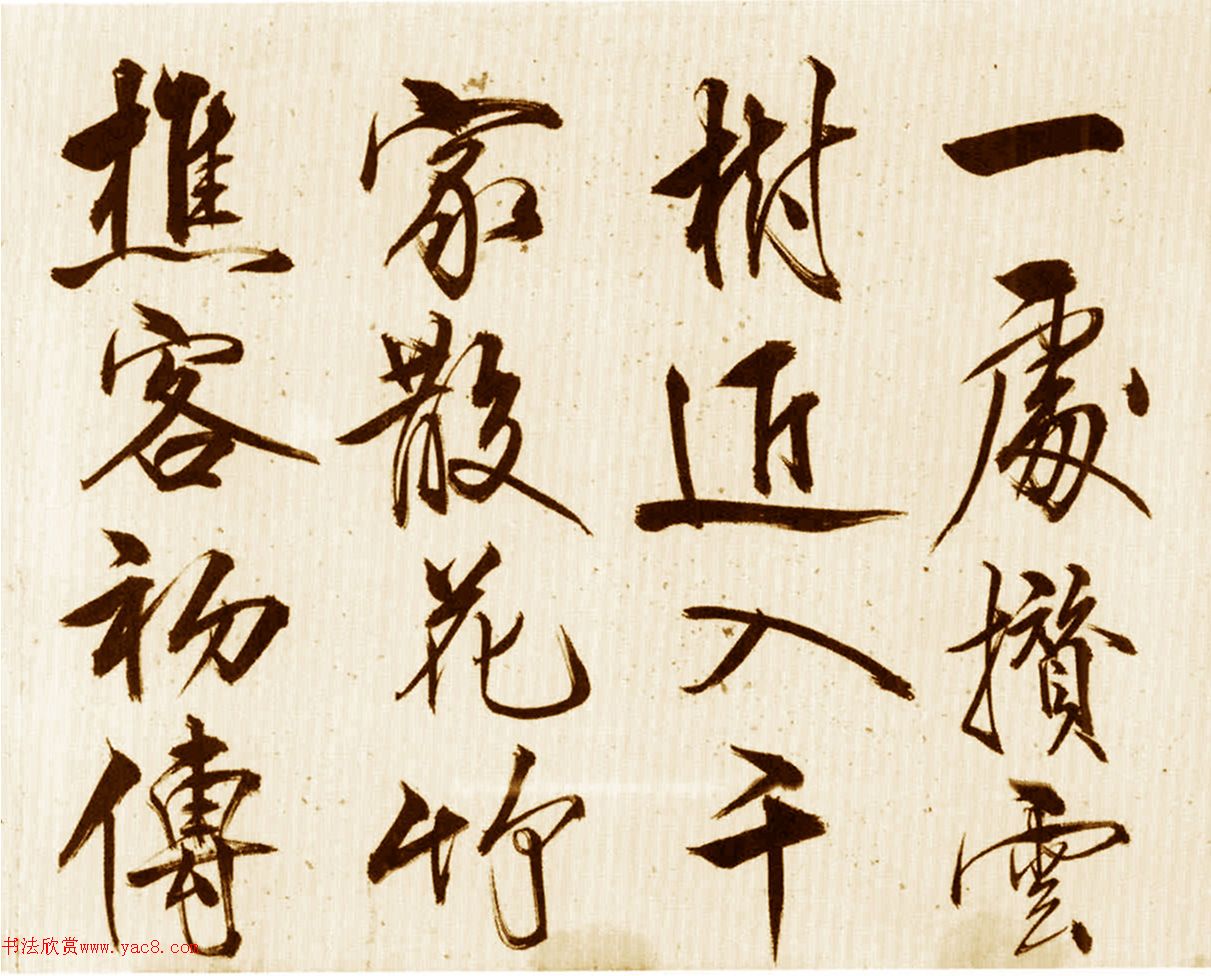 一處攢雲
樹近入千
家散花竹
樵客初傳
书法欣赏www.yac8.com